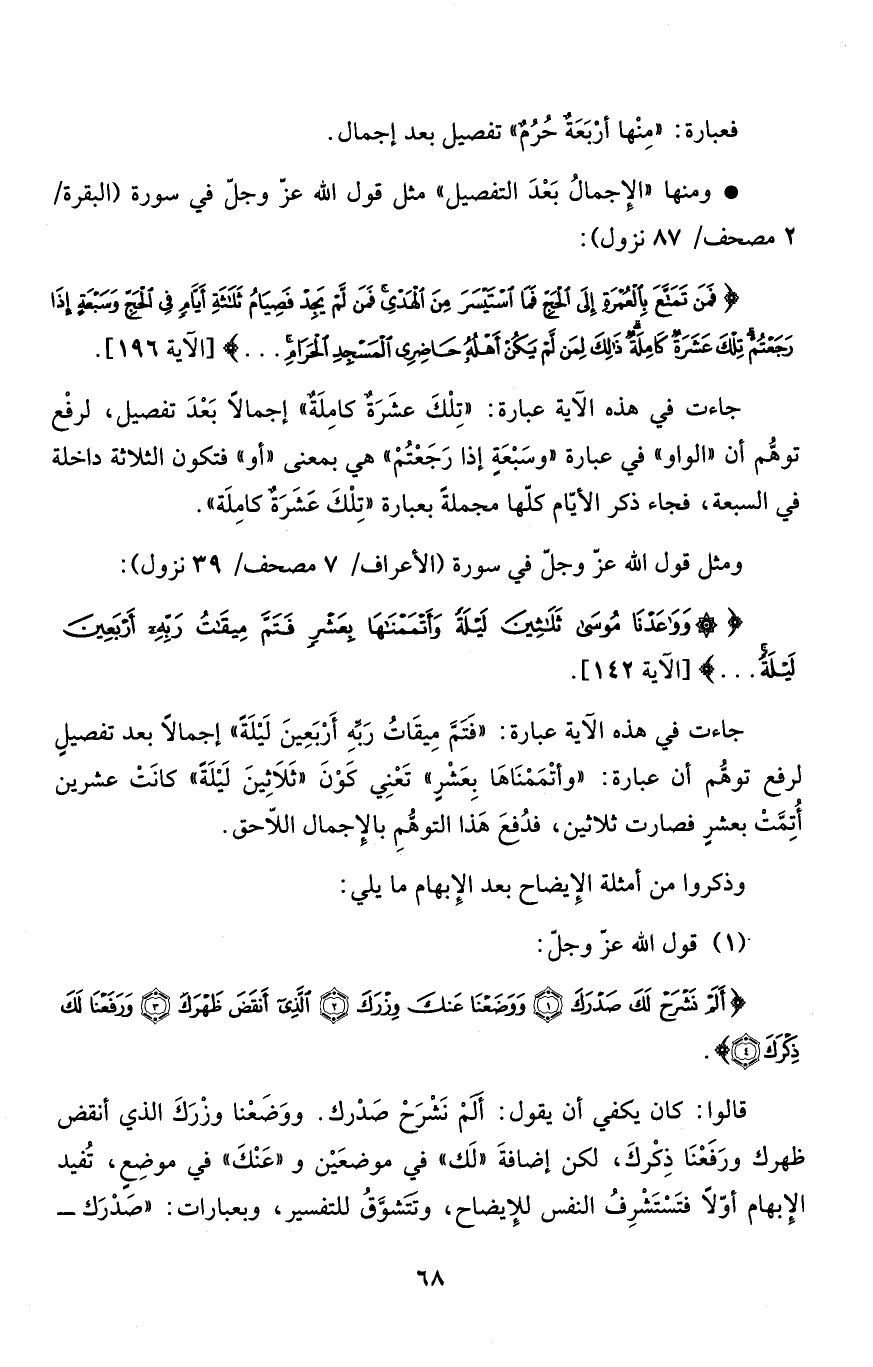 فعبارة: «مِنْها أرْبَعَةٌ حُرُمٌ» تفصيل بعد إجمال.
● ومنها «الإِجمالُ بَعْدَ التفصيل» مثل قول الله عزّ وجلّ في سورة (البقرة/
٢ مصحف/ ٨٧ نزول):
﴿ فَمَن تَمَتَّعَ بِٱلْعُمْرَةِ إِلَى ٱلْحَجِّ فَمَا ٱسْتَيْسَرَ مِنَ ٱلْهَدْيِ ۚ فَمَن لَّمْ يَجِدْ فَصِيَامُ ثَلَٰثَةِ أَيَّامٍ فِى ٱلْحَجِّ وَسَبْعَةٍ إِذَا
رَجَعْتُمْ ۗ تِلْكَ عَشَرَةٌ كَامِلَةٌ ۗ ذَٰلِكَ لِمَن لَّمْ يَكُنْ أَهْلُهُۥ حَاضِرِى ٱلْمَسْجِدِ ٱلْحَرَامِ ۚ . . . ﴾ [الآية ١٩٦].
جاءت في هذه الآية عبارة: «تِلْكَ عشَرَةٌ كامِلَةٌ» إجمالاً بَعْدَ تفصيل، لرفْع
توهُّم أن «الواو» في عبارة «وسَبْعَةٍ إذا رَجَعْتُمْ» هي بمعنى «أو» فتكون الثلاثة داخلة
في السبعة، فجاء ذكر الأيّام كلّها مجملةً بعبارة «تِلْكَ عَشَرَةٌ كامِلَة».
ومثل قول الله عزّ وجلّ في سورة (الأعراف/ ٧ مصحف/ ٣٩ نزول):
﴿ ۞ وَوَٰعَدْنَا مُوسَىٰ ثَلَٰثِينَ لَيْلَةً وَأَتْمَمْنَٰهَا بِعَشْرٍ فَتَمَّ مِيقَٰتُ رَبِّهِۦٓ أَرْبَعِينَ
لَيْلَةً ۚ . . . ﴾ [الآية ١٤٢].
جاءت في هذه الآية عبارة: «فَتَمَّ مِيقَاتُ رَبِّهِ أَرْبَعِينَ لَيْلَةً» إجمالاً بعد تفصيلٍ
لرفع توهُّم أن عبارة: «وأتْمَمْنَاهَا بِعَشْرٍ» تَعْنِي كَوْنَ «ثَلَاثِينَ لَيْلَةً» كانَتْ عشرين
أُتِمَّتْ بعشرٍ فصارت ثلاثين، فدُفِعَ هَذا التوهُّمِ بالإِجمال اللاّحق.
وذكروا من أمثلة الإِيضاح بعد الإِبهام ما يلي:
(١) قول الله عزّ وجلّ:
﴿ أَلَمْ نَشْرَحْ لَكَ صَدْرَكَ ١ وَوَضَعْنَا عَنكَ وِزْرَكَ ٢ ٱلَّذِىٓ أَنقَضَ ظَهْرَكَ ٣ وَرَفَعْنَا لَكَ
ذِكْرَكَ ٤ ﴾.
قالوا: كان يكفي أن يقول: أَلَمْ نَشْرَحْ صَدْرك. ووَضَعْنا وزْرَكَ الذي أنقض
ظهرك ورَفَعْنَا ذِكْركَ، لكن إضافةَ «لَك» في موضعَيْن و «عَنْكَ» في موضِعٍ، تُفيد
الإِبهام أوّلاً فتَسْتَشْرِفُ النفس للإِيضاح، وتَتَشوَّقُ للتفسير، وبعبارات: «صَدْرَك ــ
٦٨